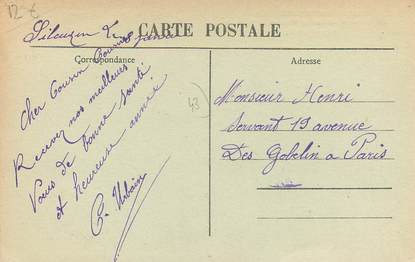 12 €
CARTE POSTALE
Correspondance
Adresse
Cher Cousin Cousine
Recevez nos meilleurs
Vœux de bonne santé
et heureuse année
C. Urbain
43
Monsieur Henri
Servant 19 avenue
Des Gobelin a Paris